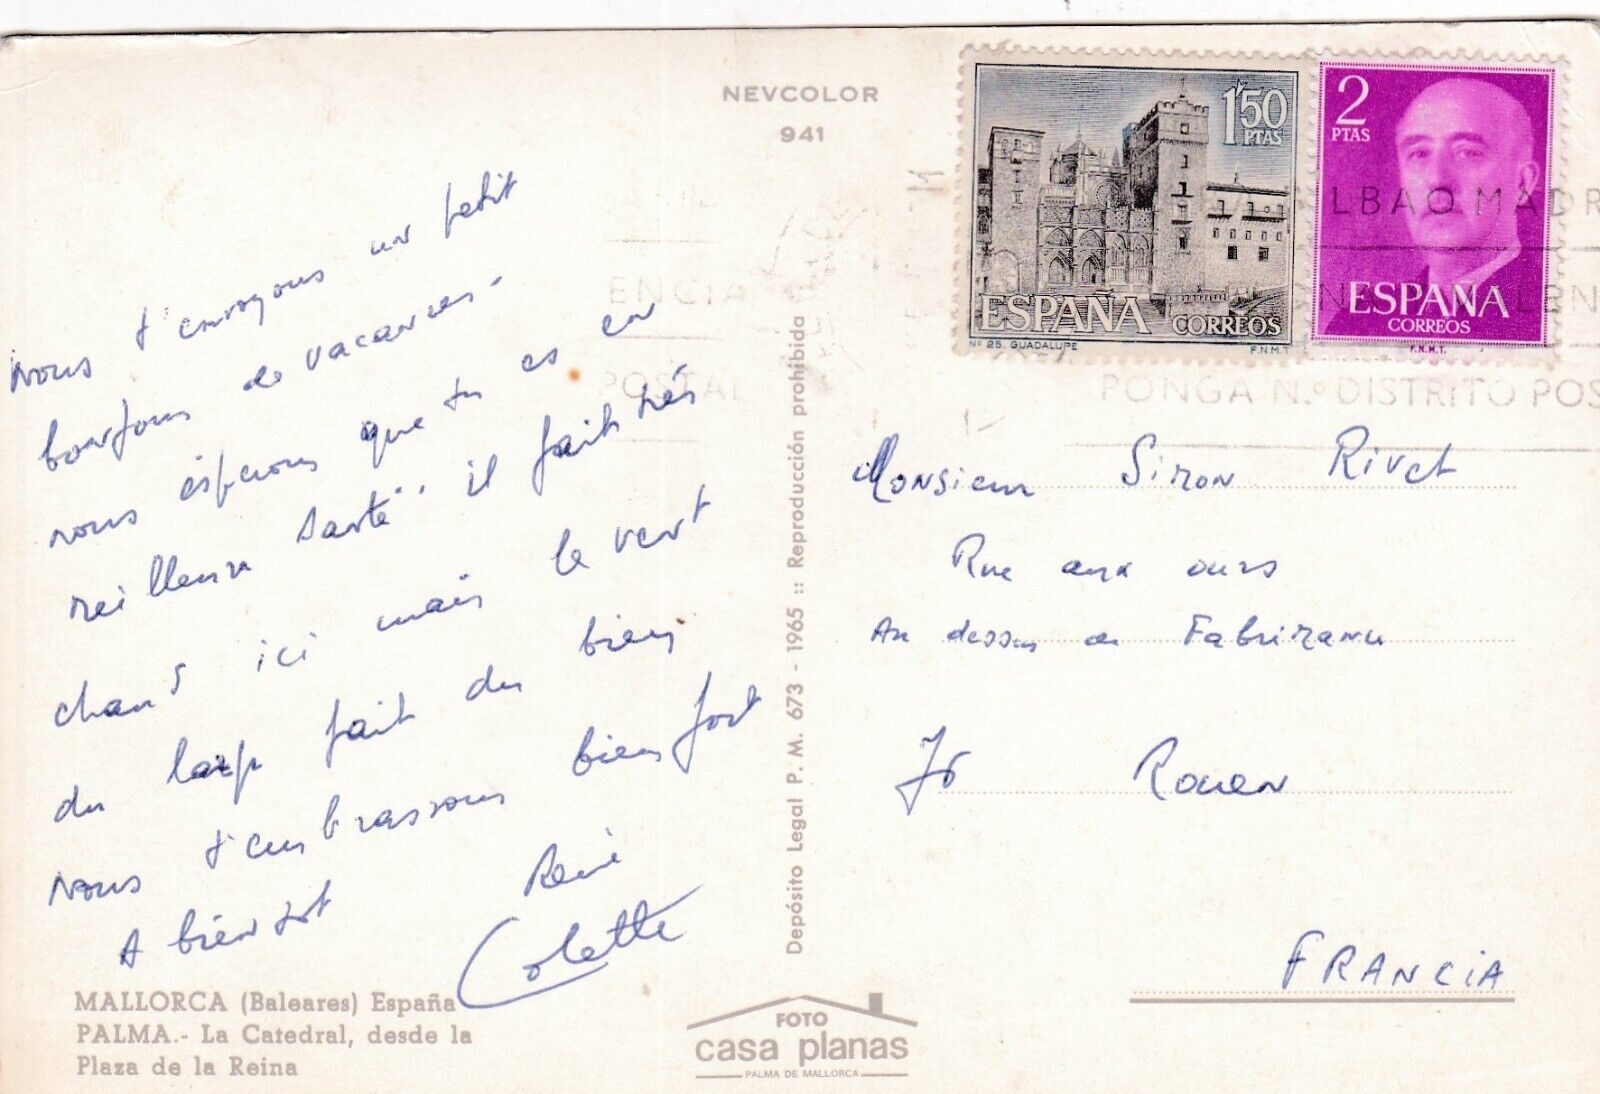 NEVCOLOR
941
1'50
PTAS
ESPAÑA CORREOS
Nº 25. GUADALUPE F.N.M.T
2
PTAS
ESPAÑA
CORREOS
F.N.M.T.
LBAO MADR
ENCIA
POSTAL
PONGA N.º DISTRITO POS
Nous t'envoyons un petit
bonjour de vacances -
nous espérons que tu es en
meilleure santé. il fait très
chaud ici mais le vent
du large fait du bien
Nous t'embrassons bien fort
A bientôt René
Colette
MALLORCA (Baleares) España
PALMA.- La Catedral, desde la
Plaza de la Reina
Depósito Legal P. M. 673 - 1965 :: Reproducción prohibida
FOTO
casa planas
PALMA DE MALLORCA
Monsieur Simon Rivet
Rue aux ours
Au dessus de
76 Rouen
FRANCIA